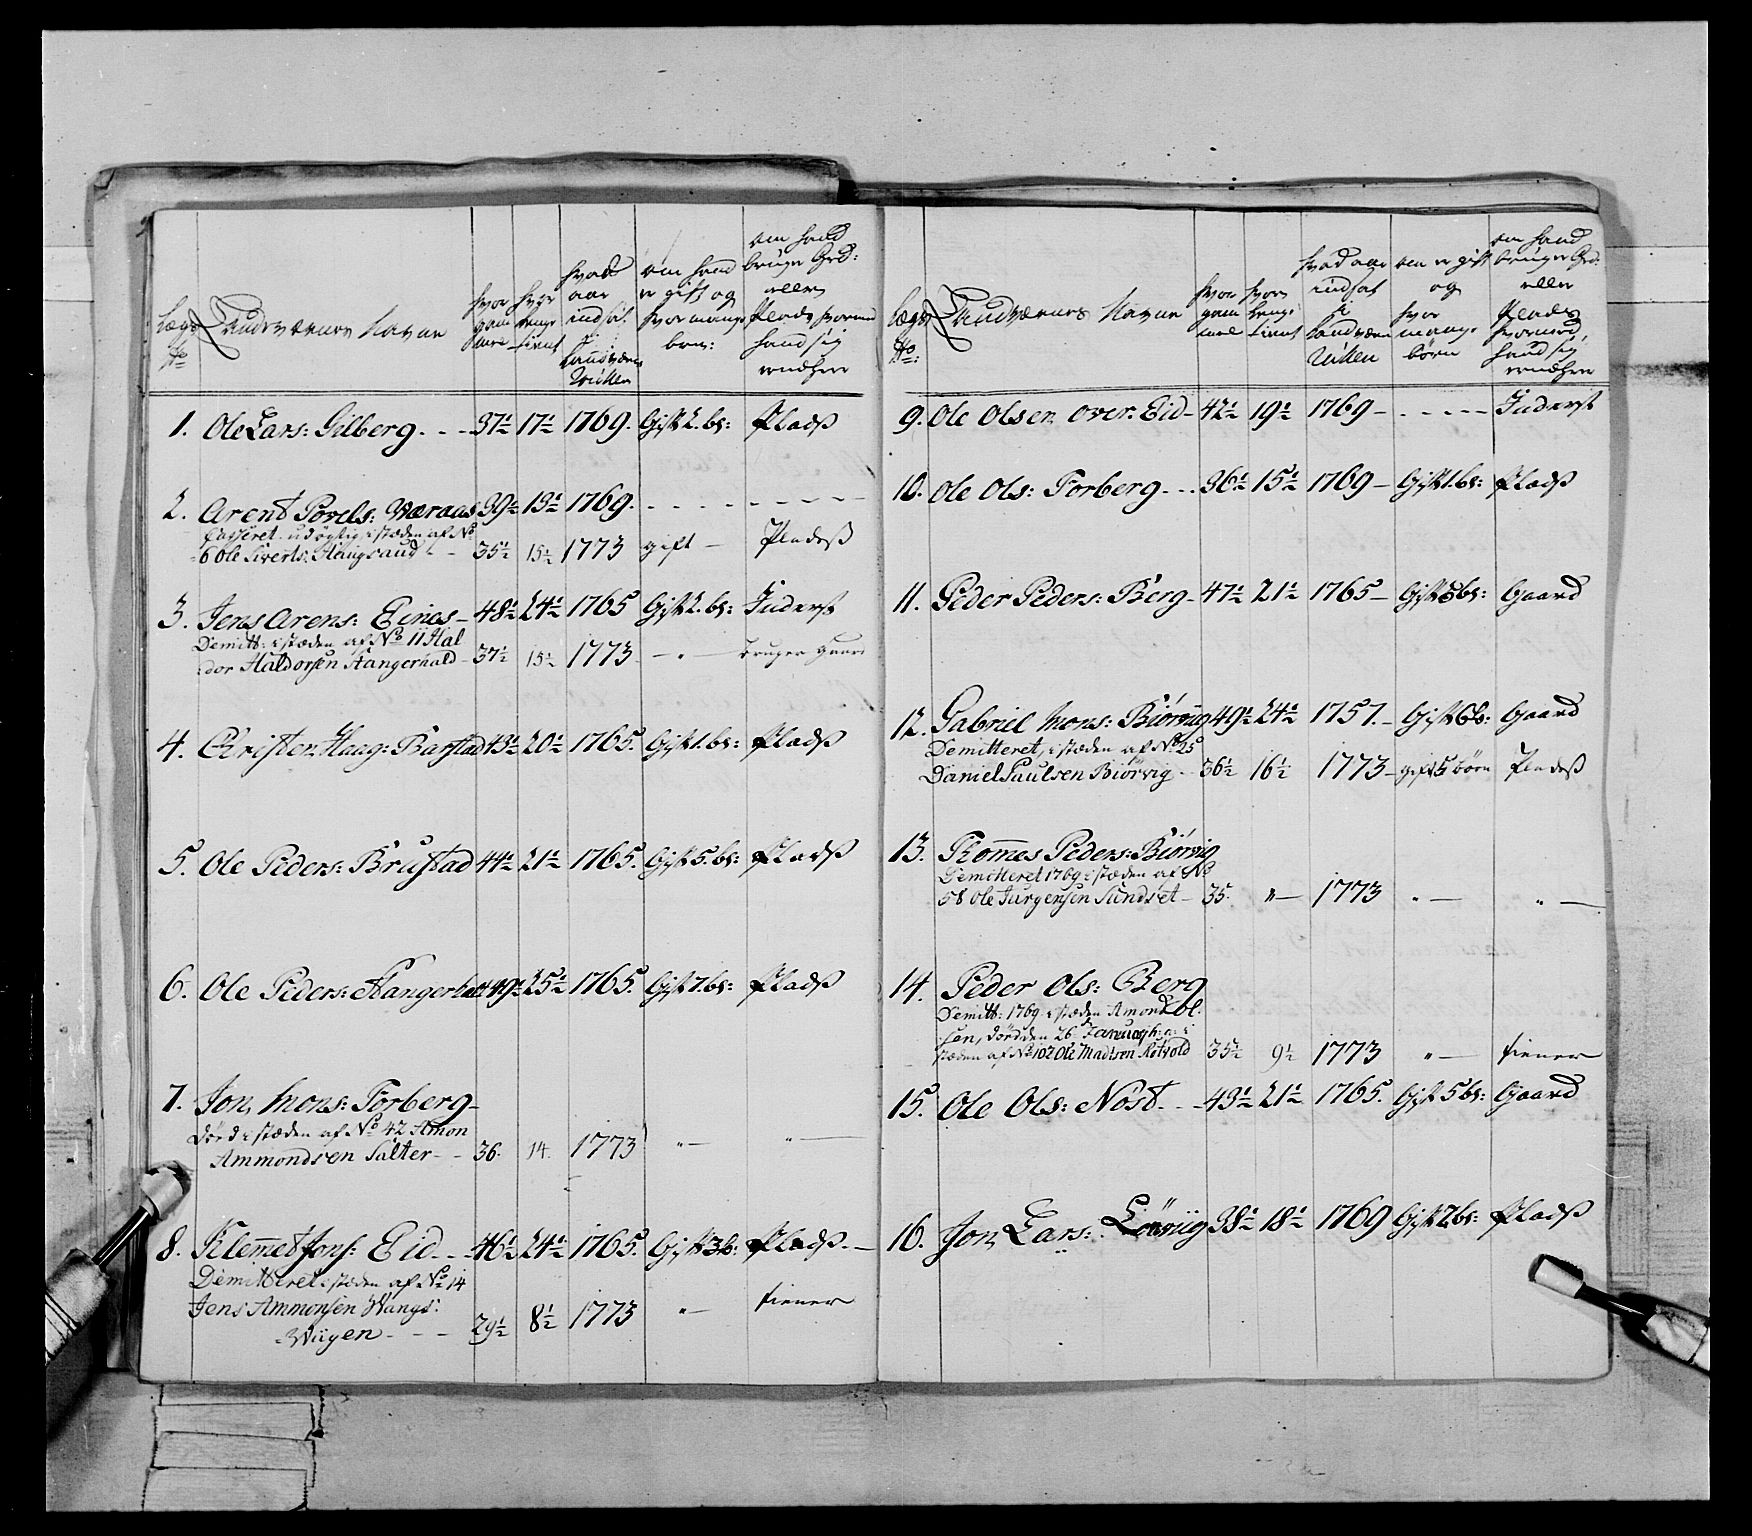 Lægs No | Landværnes Navne | hvor gammel | hvor lenge tient | hvad aar indsat i Landværn Rullen | om hand er gift og hvor mange børn: | om hand bruger Grd: eller Plads hvormed hand sig ernæhrer
1. Ole Lars: Gilberg - - - 37½ 17½ 1769. Gift 2. br: Pladß
2. Arent Povels: Weraas 39½ 13½ 1769. - - - - -
Casseret udögtig, i stæden af No
6 Ole Siverts: Haugsaud - - 35½ 15½ 1773 gift — Pladß
3. Jens Arens: Eines - 48½ 24½ 1765 Gift 2. br: Inderst
Demitt: i stæden af No 11 Hal
dor Haldorsen Aangerhald - 37½ 15½ 1773 — " — bruger gaard
4. Christen Haag: Barstad 43½ 20½ 1765. Gift 1. br: Pladß
5. Ole Peders: Brustad 44½ 21½ 1765. Gift 5. br: Pladß
6. Ole Peders: Aangerhalt 49½ 25½ 1765. Gift 7. br: Pladß
7. Jon Mons: Forberg -
Dörd i stæden af No 42 Amon
Ammondsen Salter - - 36. 14. 1773 " — " —
8. Klemet Jons: Eid - - 46½ 24½ 1765. Gift 3 b: Pladß. —
Demitteret i stæden af No 14
Jens Ammonsen Wangs:
Wiigen - - - 29½ 8½ 1773 " — tiener
Lægs No: | Landværnes Navne | hvor gammel | hvor lenge tient | hvad aar indsat i Landværn Rullen | om er gift og hvor mange börn | om hand bruger Grd: eller Plads, hvormed hand sig ernæhrer
9. Ole Olsen over. Eid - 42½ 19½ 1769 - - - - - - Inderst
10. Ole Ols: Forberg - - - 36½ 15½ 1769 — Gift 1. br: Pladß
11. Peder Peders: Berg - 47½ 21½ 1765 — Gift 5 br: Gaard
12. Gabriel Mons: Biörviig 49½ 24½ 1757. — Gift 6 b: Gaard
Demitteret, i stæden af No 25
Daniel Paulsen Biörvig - - 36½ 16½ 1773 — gift 5 börn Pladß
13. Thomes Peders: Biörvig
Demitteret 1769 i stæden af No
58 Ole Jurgensen Sundset - 35. " — 1773 " — " —
14. Peder Ols: Berg
Demitt: 1769 i stæden Amond Ol:
sen, dörd den 26 Januarj h: a: i
stæden af No 102 Ole Madsen Rotvold 35½ 9½ 1773 " — tiener
15. Ole Ols: Nöst - - - 43½ 21½ 1765. Gift 5 br: Gaard
16. Jon Lars: Löeviig 38½ 18½ 1769 Gift 2 br: Pladß